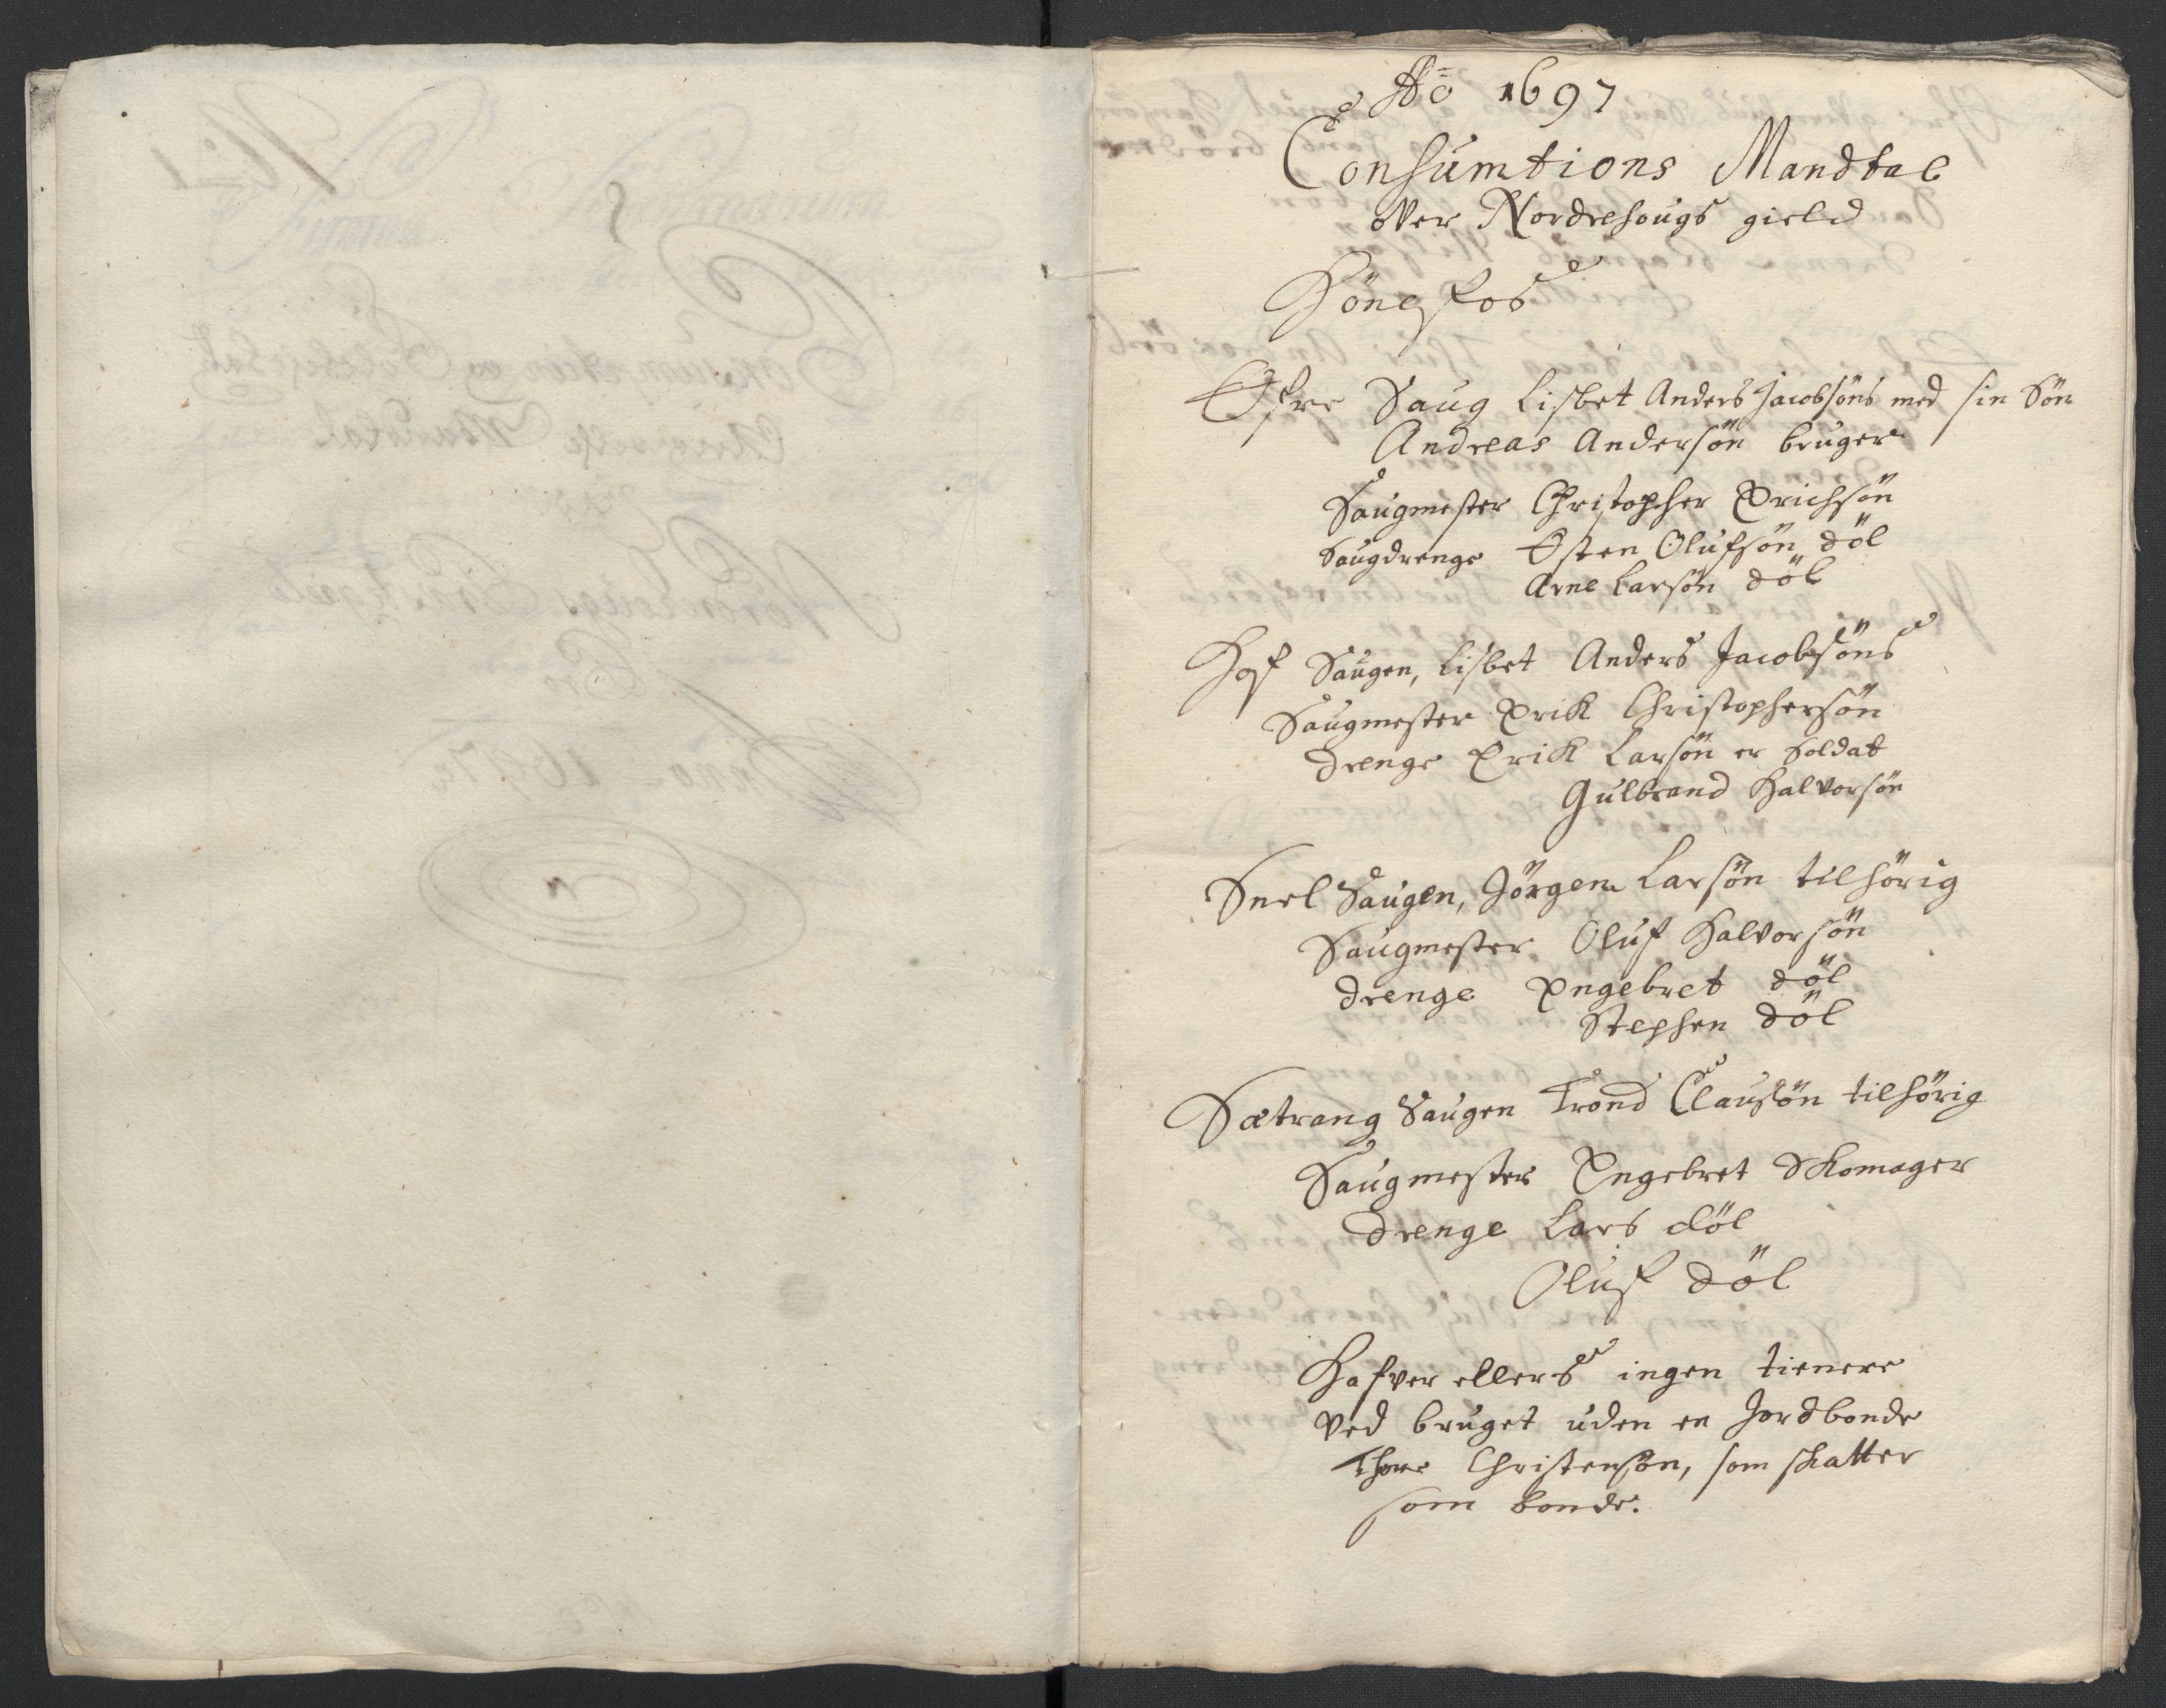 Ao 1697
Consumtions Mandtal
over Nordrehougs gield
Hönefos
Öfre Saug Lisbet Anders Jacobsöns med sin Sön
Andreas Andersön bruger
Saugmester Christopher Erichsön
Saugdrenge Østen Olufsön döl
Arne Larsön döl
Hof Saugen, Lisbet Anders Jacobsöns
Saugmester Erik Christophersön
drenge Erik Larsön er Soldat
Gulbrand Halvorsön
Snel Saugen, Jörgen Larsön tilhörig
Saugmester Oluf Halvorsön
drenge Engebret döl
Stephen döl
Sætrang Saugen Trond Clausön tilhörig
Saugmester Engebret Skomager
drenge Lars döl
Oluf döl
Hafver ellers ingen tienere
ved bruget uden en Jordbonde
Thore Christensön, som skatter
som bonde.